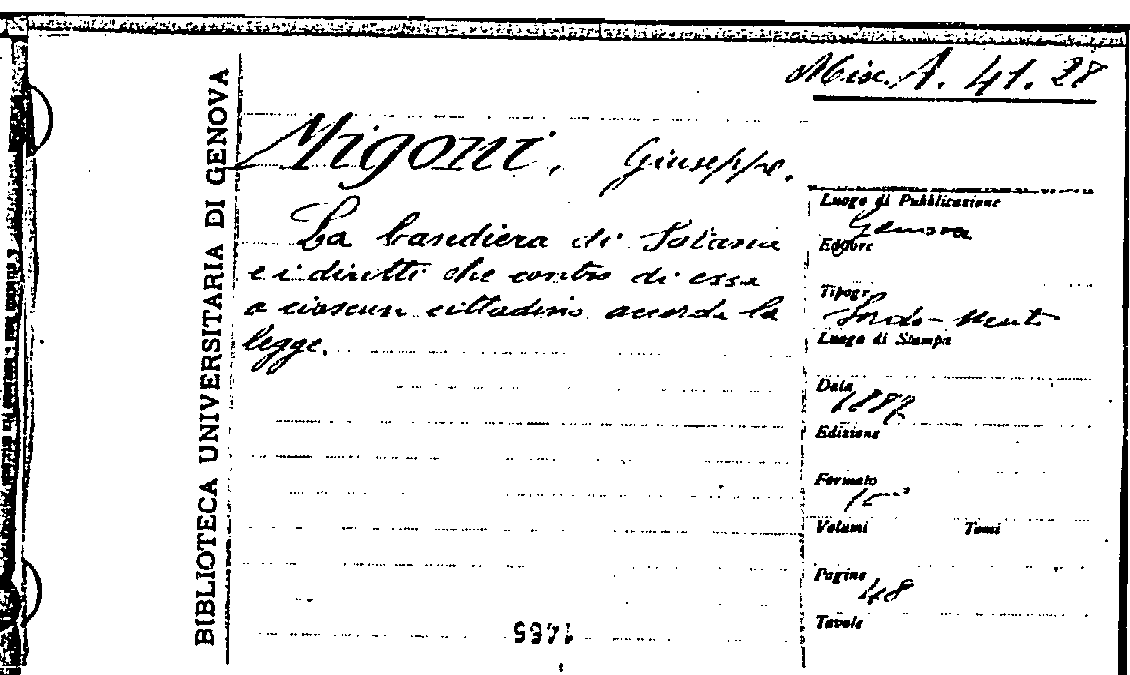 Misc. A. 41. 28
BIBLIOTECA UNIVERSITARIA DI GENOVA
Migoni, Giuseppe.
La bandiera di Satana
e i diritti che contro di essa
a ciascun cittadino accorda la
legge.
Luogo di Pubblicazione
Genova
Editore
Tipogr.
Sordo-Muti
Luogo di Stampa
Data
Edizione
Formato
Volumi Tomi
Pagine
48
Tavole